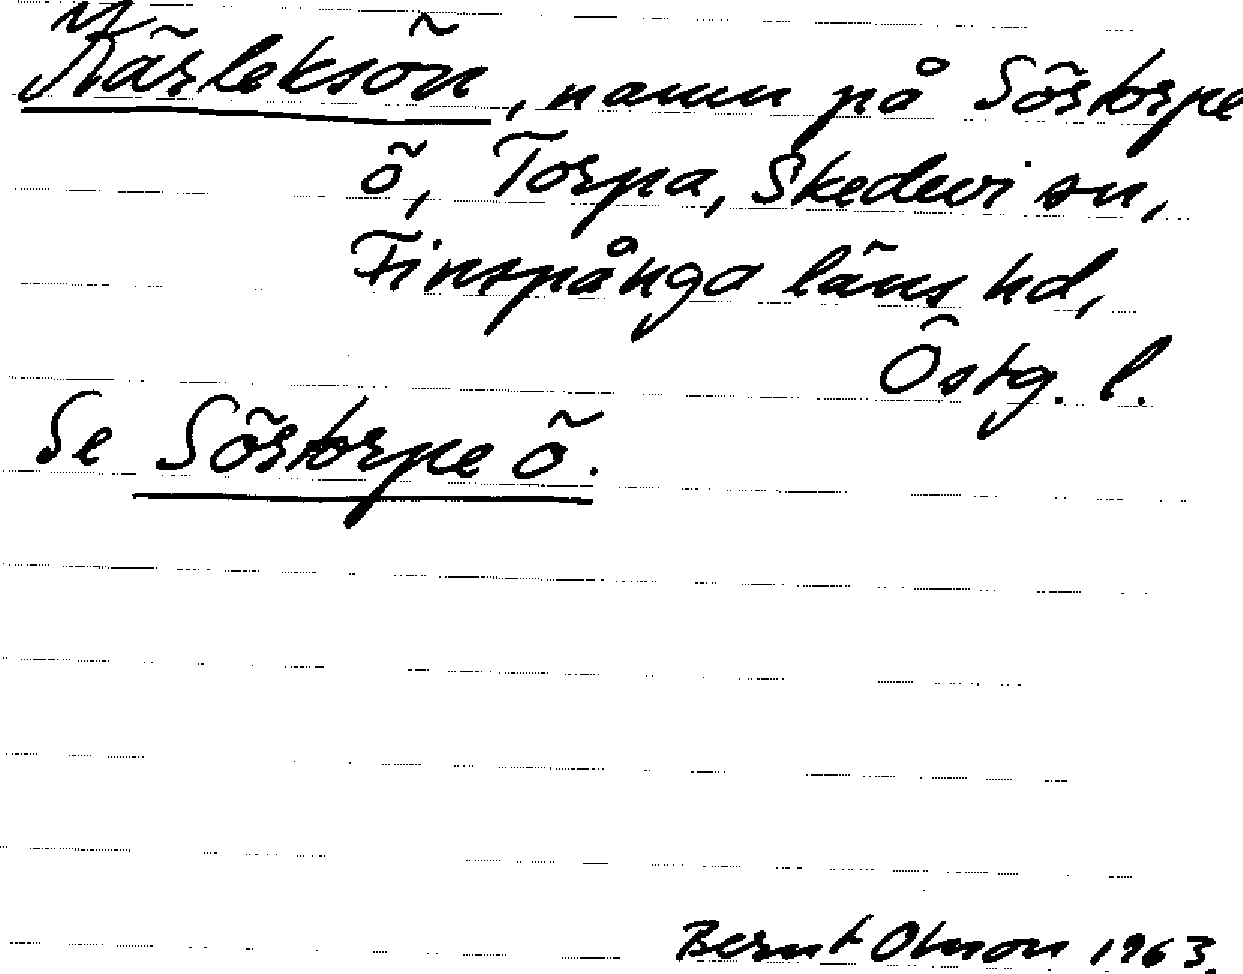 Kärleksön, namn på Sörtorpe
ö, Torpa, Skedevi sn,
Finspånga läns hd,
Östg. l.
Se Sörtorpe ö.
Bernt Olsson 1963.